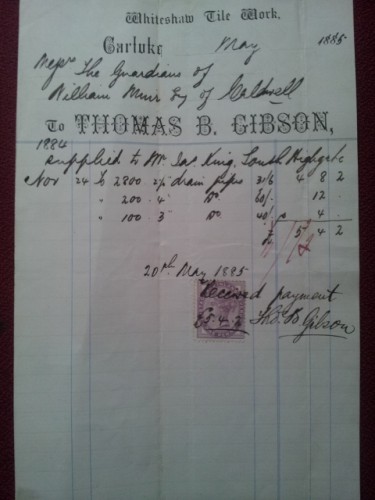 Whiteshaw Tile Work,
Carluke May 1885
Messrs The Guardians of
William Muir Esq of Caldwell
To THOMAS B. GIBSON,
1884
Supplied to Mr Jas King, South Highgate
Nov 24 To 2800 2½ drain pipes 31/6 4 8 2
" 200 4 Do 60/- 12 -
" 100 3 Do 40/- 4 -
£5 4 2
20th May 1885
Received payment
£5.4.2 Thos B Gibson